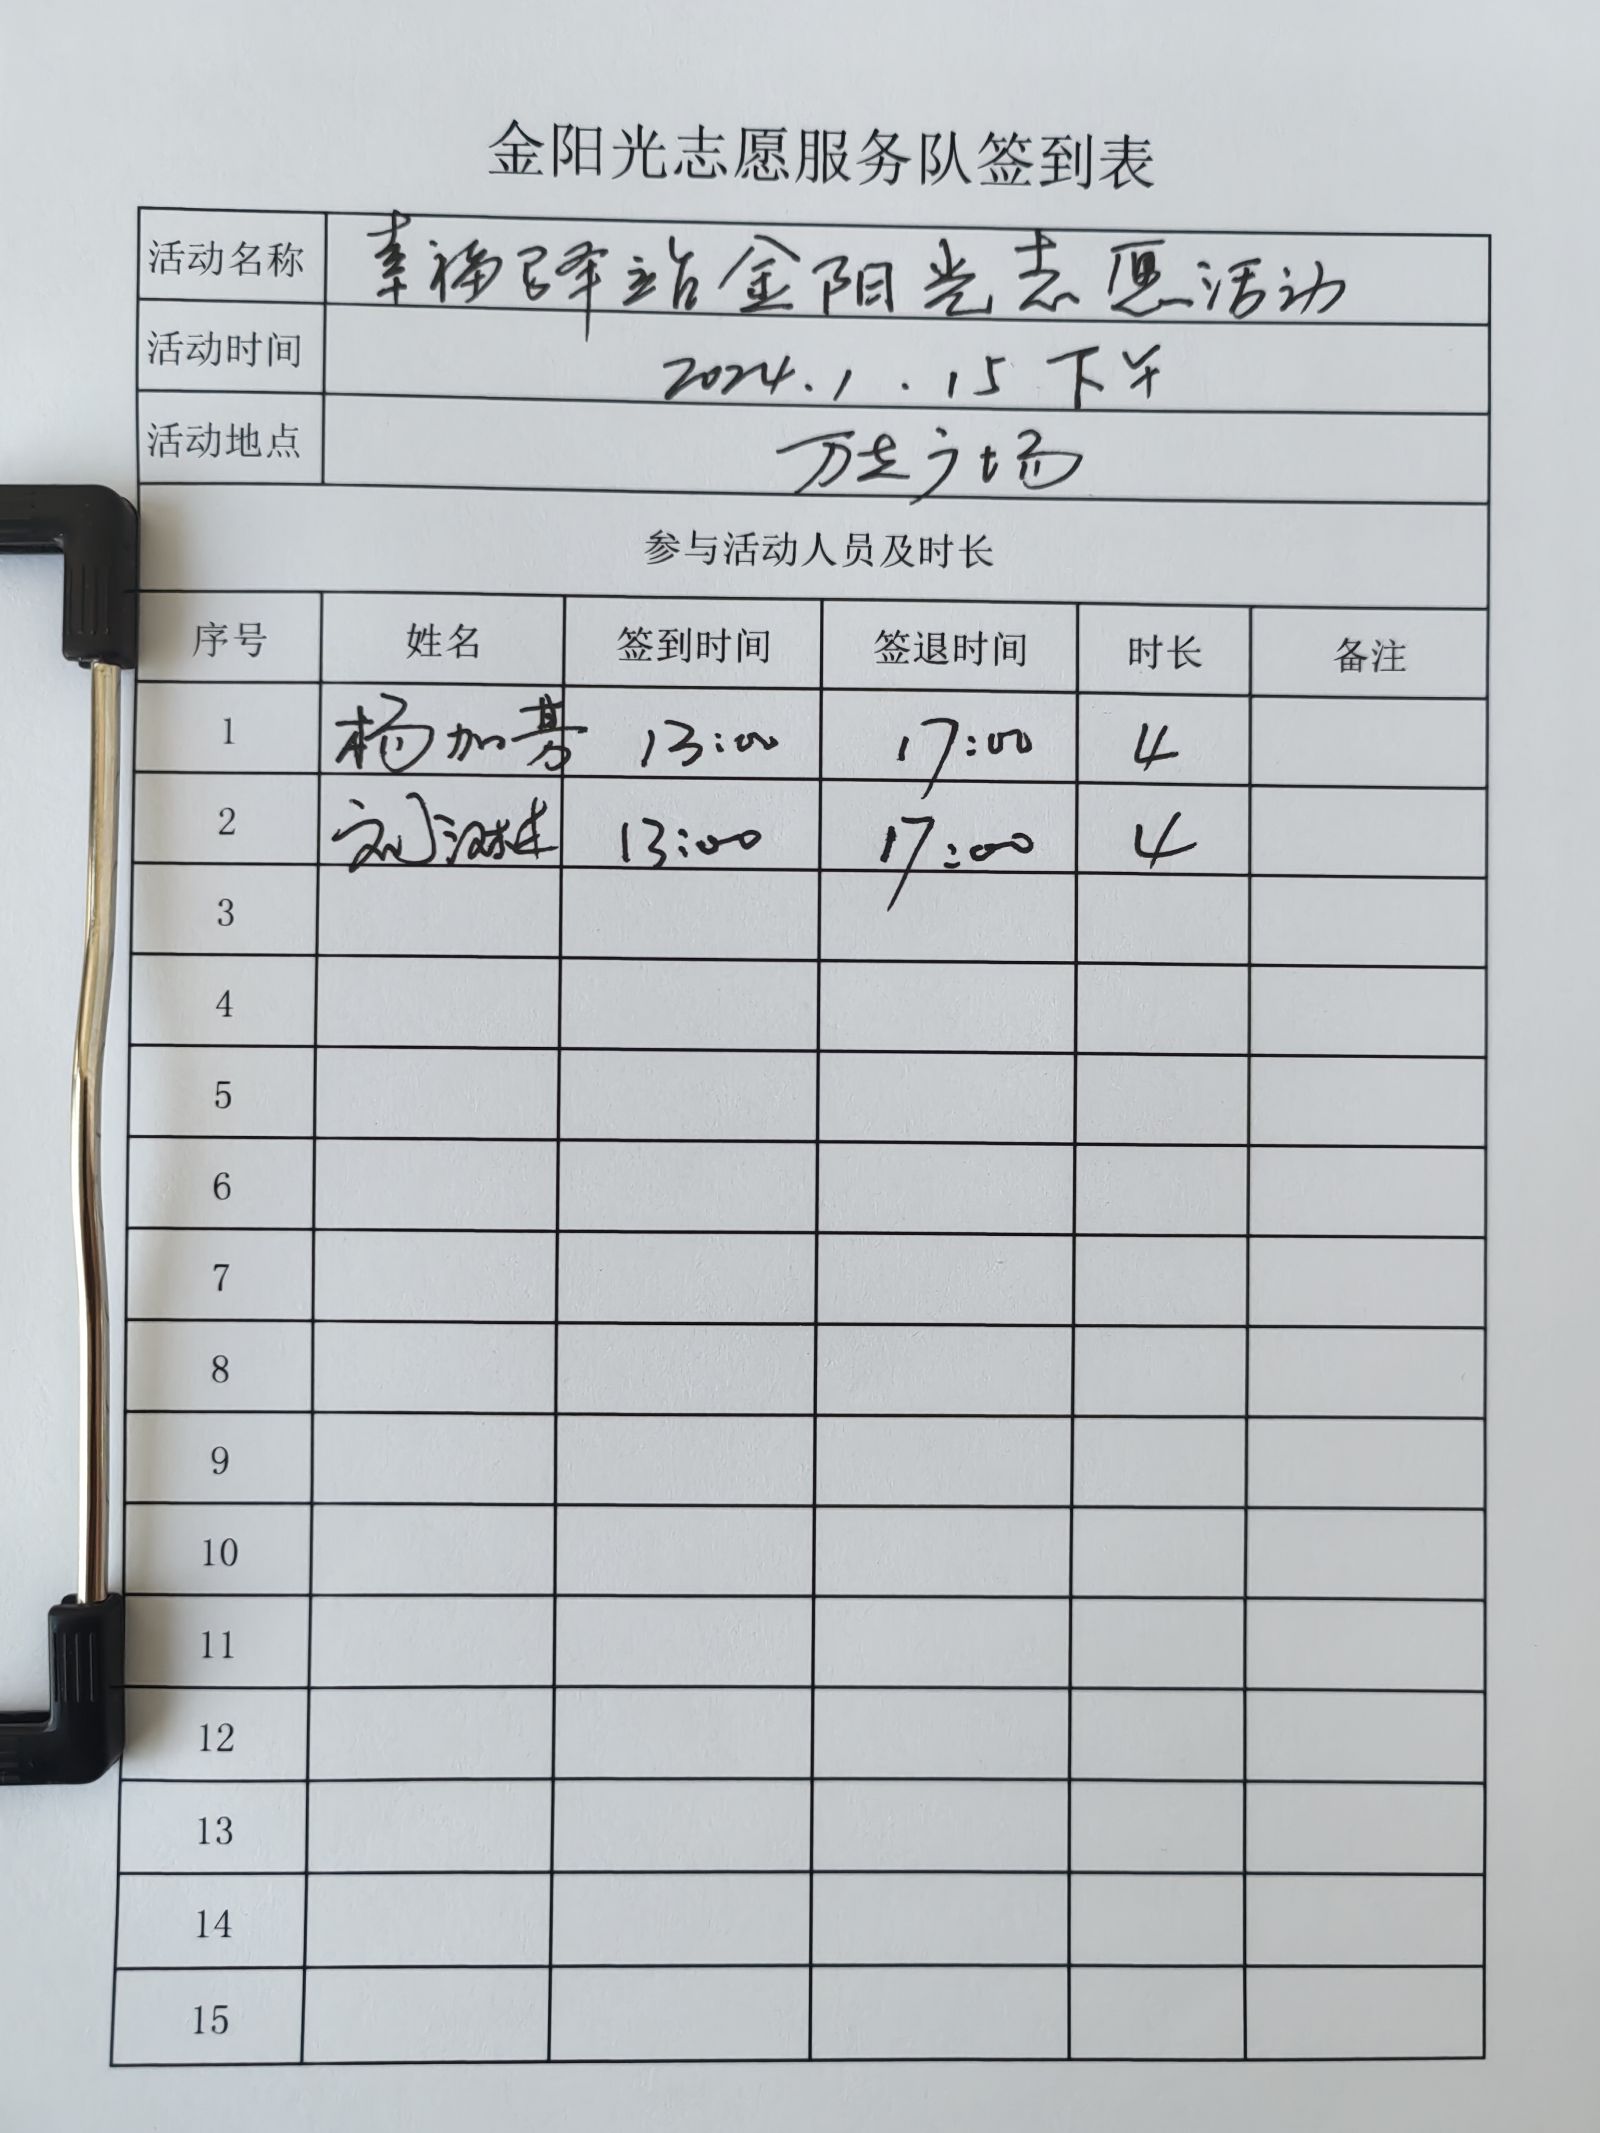 金阳光志愿服务队签到表
活动名称 幸福驿站金阳光志愿活动
活动时间 2024.1.15 下午
活动地点 万达广场
参与活动人员及时长
序号 姓名 签到时间 签退时间 时长 备注
1 杨加 13:00 17:00 4
2 刘 13:00 17:00 4
3
4
5
6
7
8
9
10
11
12
13
14
15